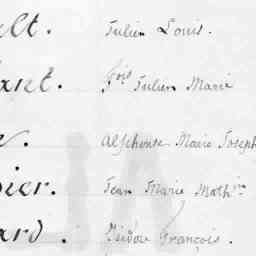 elt. Julien Louis.
art. fois Julien Marie
e. Alphonse Marie Joseph
ier. Jean Marie Math.in
ard. Isidore François.